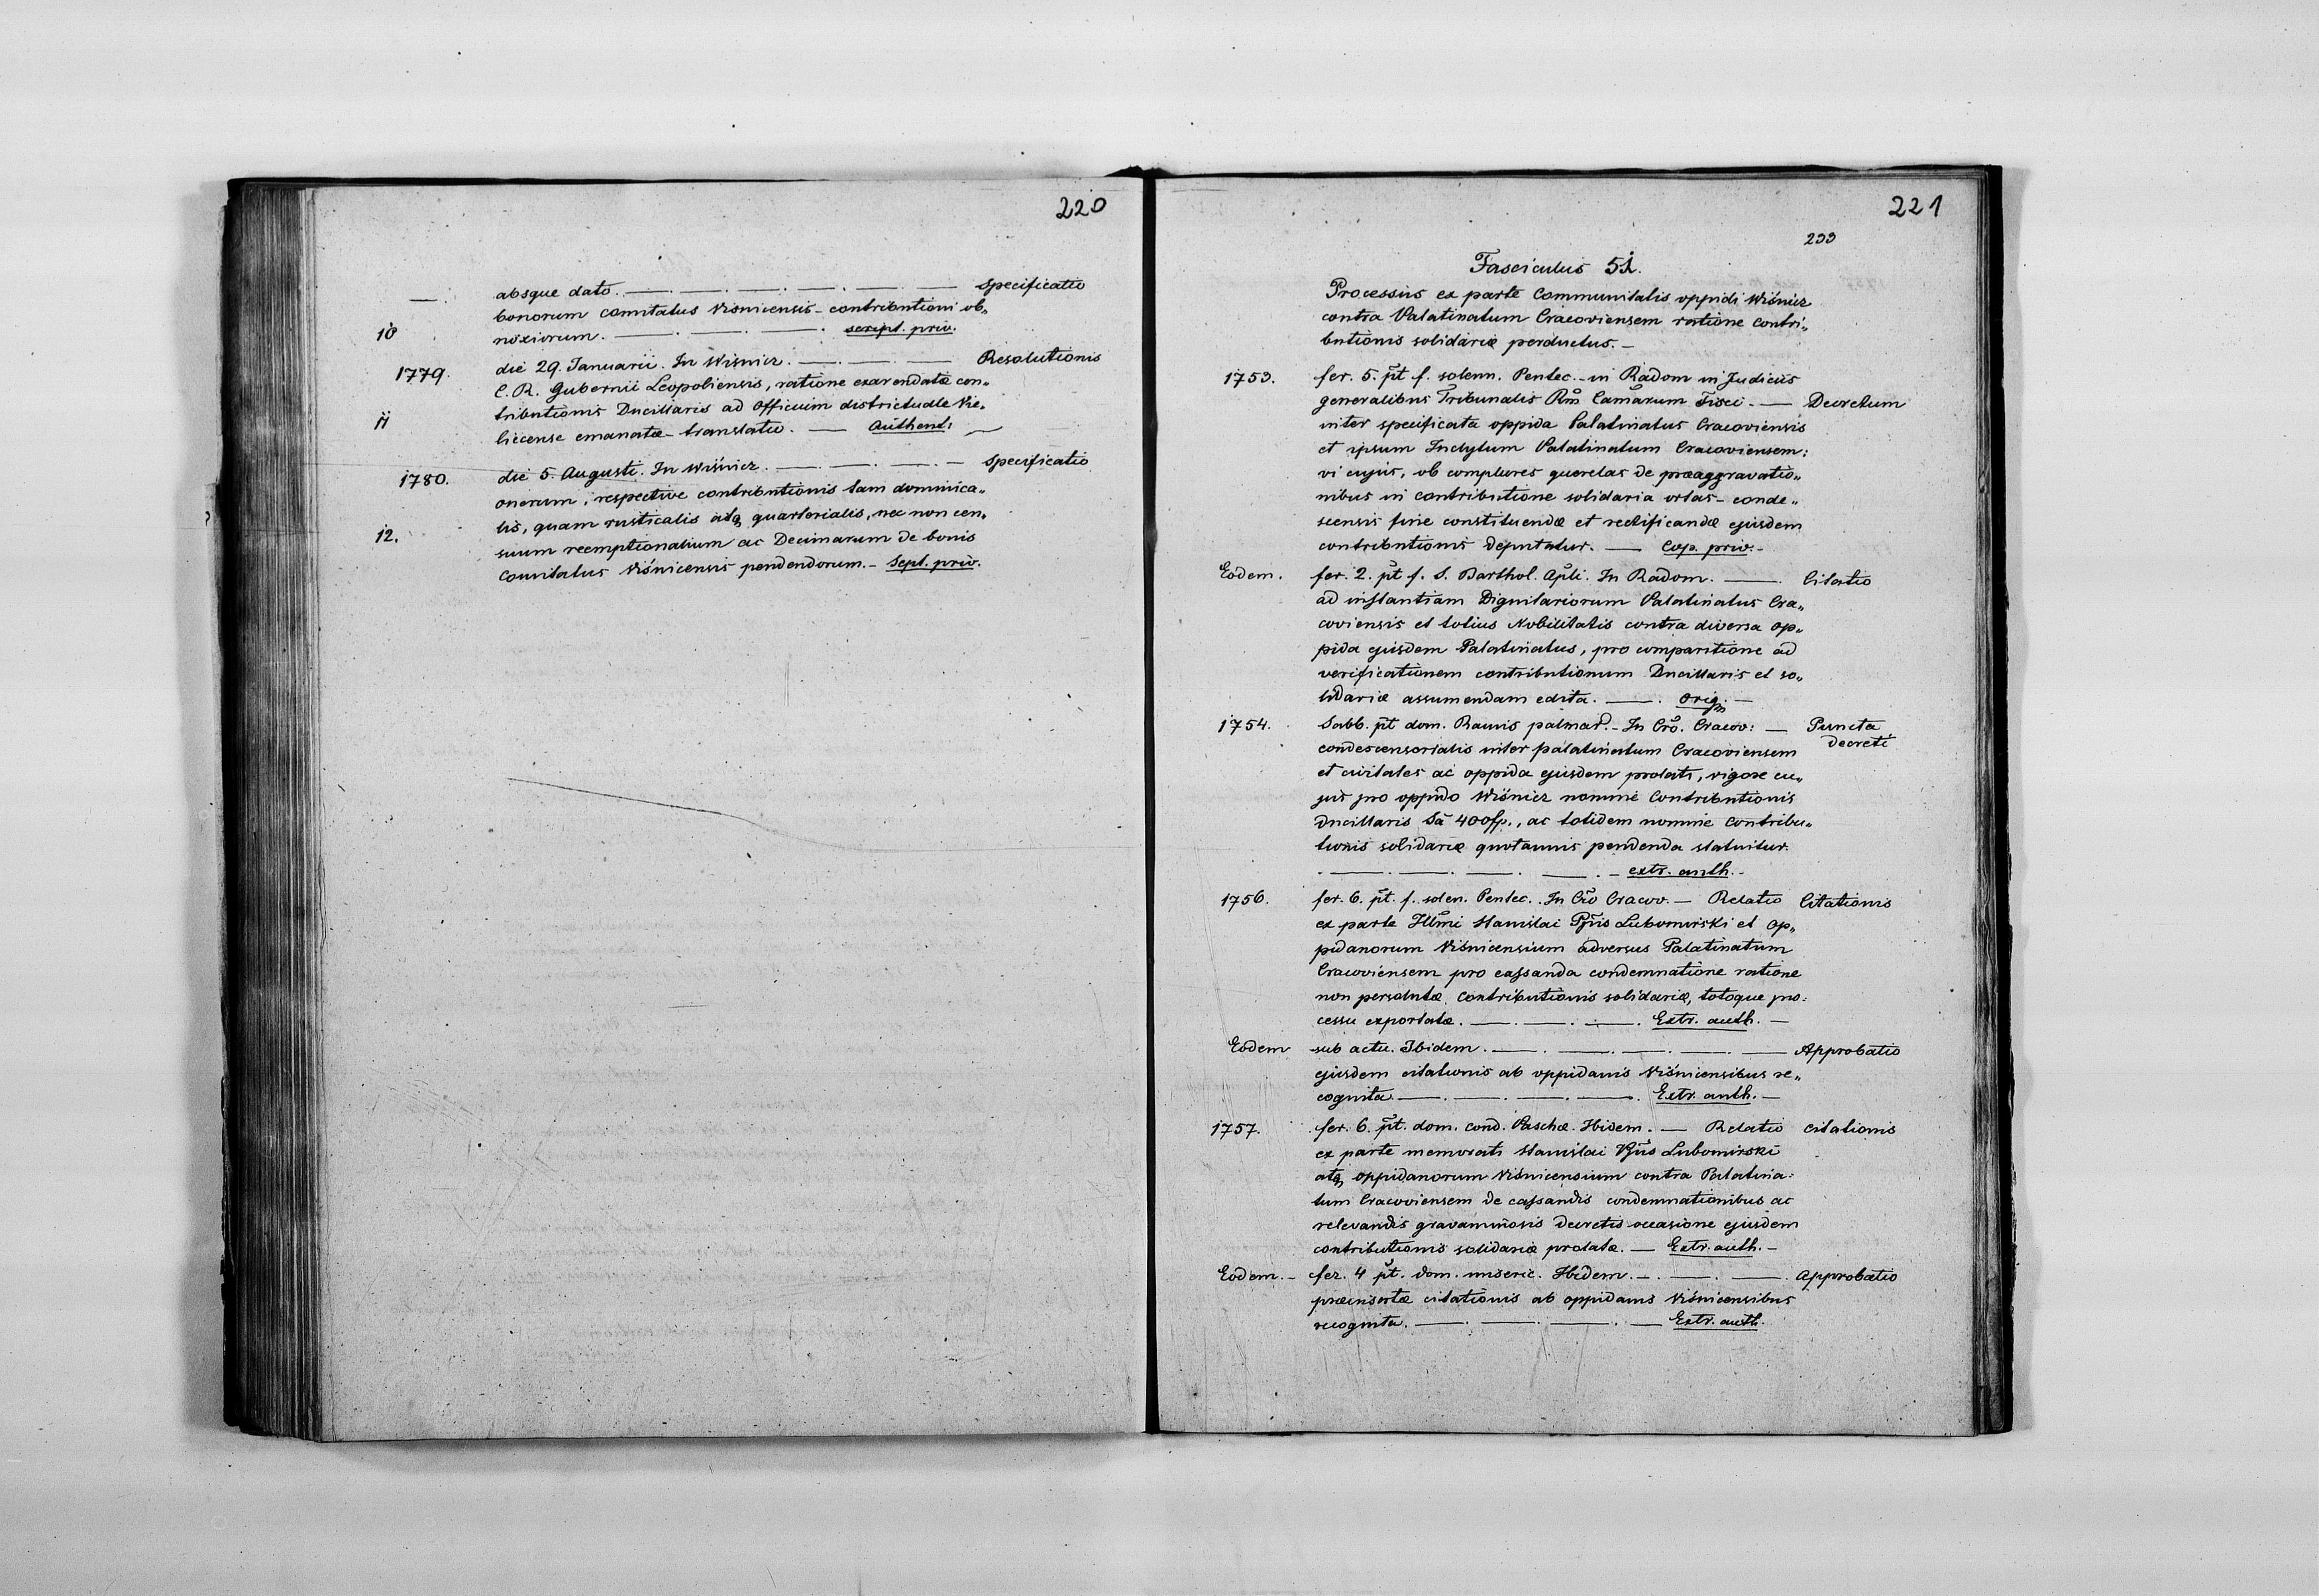 220
— absque dato. —. —. —. —. —. — Specificatio
bonorum comitatus Visnicensis - contributioni ob„
10 noxiorum. —. —. —. script. priv.
1779. die 29. Januarii. In Wisnicz. —. —. — Resolutionis
C. R. Gubernii Leopoliensis, ratione exarendatæ con„
11 tributionis Ducillaris ad Officium districtuale Vie„
liccense emanatæ - translatio. — Authent:
1780. die 5. Augusti. In Wiśnicz. —. —. — Specificatio
onerum, respective contributionis tam dominica„
lis, quam rusticalis atq quarterialis, nec non cen„
12. suum reemptionalium ac Decimarum de bonis
Comitatus Viśnicensis pendendorum. - Scpt. priv.
221
233
Fasciculus 51.
Processus ex parte Communitatis oppidi Wiśnicz
contra Palatinatum Cracoviensem ratione Contri„
butionis solidariæ perductus. —
1753. fer. 5. pt f. solenn. Pentec. - in Radom in Judiciis
generalibus Tribunalis Rm Camarum Fisci. — Decretum
inter specificata oppida Palatinatus Cracoviensis
et ipsum Inclytum Palatinatum Cracoviensem:
vi cujus, ob complures querelas de præaggravatio„
nibus in contributione solidaria ortas - conde„
scensio fine constituendæ et rectificandæ ejusdem
contributionis deputatur. — Cop. priv. -
Eodem. fer. 2. pt f. S. Barthol. Apli. In Radom. —. Citatio
ad instantiam Dignitariorum Palatinatus Cra„
coviensis et totius Nobilitatis contra diversa op„
pida ejusdem Palatinatus, pro comparitione ad
verificationem contributionum Ducillaris et so„
lidariæ assumendam edita. —. Orig. —
1754. Sabb. pt dom. Ramis palmar. - In Cro. Cracov: — Puncta
decreti
condescensorialis inter palatinatum Cracoviensem
et civitates ac oppida ejusdem prolati, vigore cu„
jus pro oppido Wiśnicz nomine Contributionis
Ducillaris Sa 400 fp., ac totidem nomine contribu„
tionis solidariæ quotannis pendenda statuitur.
—. —. —. —. - extr. auth. -
1756. fer. 6. pt. f. solen. Pentec. In Cro Cracov. — Relatio Citationis
ex parte Illmi Stanislai Ppis Lubomirski et op„
pidanorum Viśnicensium adversus Palatinatum
Cracoviensem pro cassanda condemnatione ratione
non persolutæ contributionis solidariæ, totoque pro:
cessu exportatæ. —. —. —. Extr. auth. —
Eodem sub actu. Ibidem. —. —. —. —. — Approbatio
ejusdem citationis ab oppidanis Viśnicensibus re„
cognita. —. —. —. —. Extr. auth. —
1757. fer. 6. pt. dom. cond. Paschæ. Ibidem. — Relatio citationis
ex parte memorati Stanislai Ppis Lubomirski
atq oppidanorum Viśnicensium contra Palatina:
tum Cracoviensem de cassandis condemnationibus ac
relevandis gravaminosis decretis occasione ejusdem
contributionis solidariæ prolatæ. — Extr. auth. —
Eodem. - fer. 4 pt. dom. miseric. Ibidem. —. —. —. Approbatio
præinsertæ citationis ab oppidanis Viśnicensibus
recognita. —. —. —. — Extr. auth.